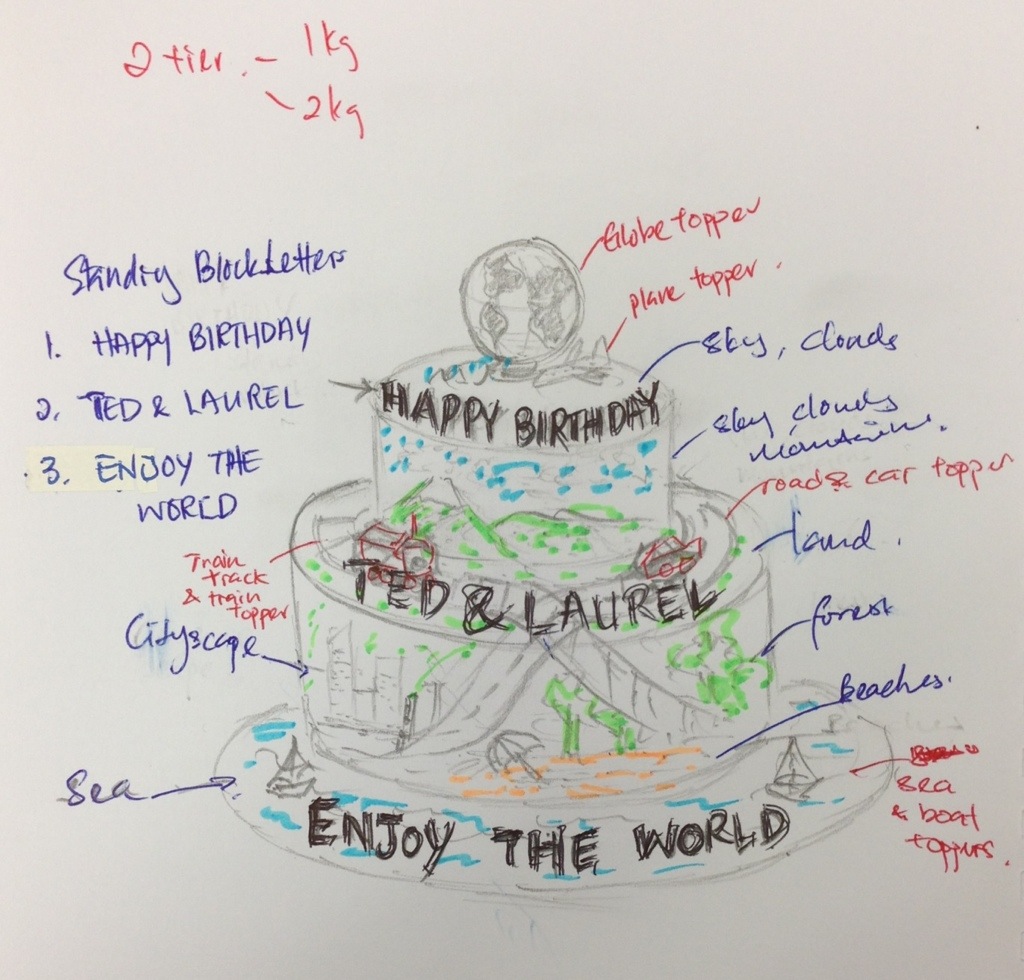 2 tier. - 1kg
- 2kg
Standing Block Letters
1. HAPPY BIRTHDAY
2. TED & LAUREL
3. ENJOY THE
WORLD
Globe topper
plane topper.
sky, clouds
HAPPY BIRTHDAY
sky, clouds
mountains.
road & car topper
land.
Train
track
& train
topper
TED & LAUREL
Cityscape
forest
Beaches.
Sea
sea
& boat
toppers.
ENJOY THE WORLD